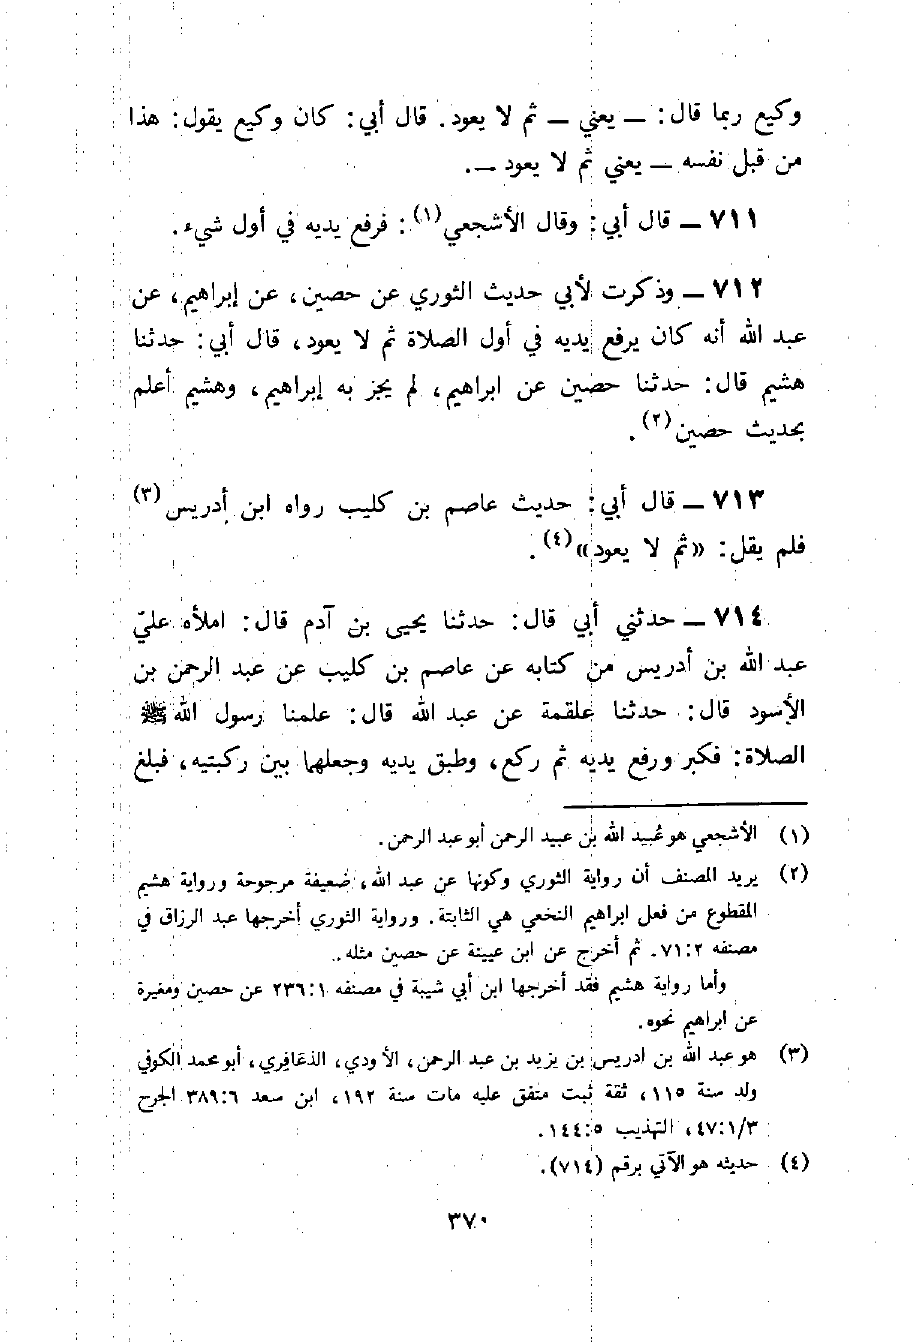 وكيع ربما قال: ــ يعني ــ ثم لا يعود. قال أبي: كان وكيع يقول: هذا
من قبل نفسه ــ يعني ثم لا يعود ــ.
٧١١ ــ قال أبي: وقال الأشجعي(١): فرفع يديه في أول شيء.
٧١٢ ــ وذكرت لأبي حديث الثوري عن حصين، عن إبراهيم، عن
عبد الله أنه كان يرفع يديه في أول الصلاة ثم لا يعود، قال أبي: حدثنا
هشيم قال: حدثنا حصين عن ابراهيم، لم يجز به إبراهيم، وهشيم أعلم
بحديث حصين(٢).
٧١٣ ــ قال أبي: حديث عاصم بن كليب رواه ابن إدريس(٣)
فلم يقل: «ثم لا يعود»(٤).
٧١٤ ــ حدثني أبي قال: حدثنا يحيى بن آدم قال: املأه عليّ
عبد الله بن أدريس من كتابه عن عاصم بن كليب عن عبد الرحمن بن
الأسود قال: حدثنا علقمة عن عبد الله قال: علمنا رسول الله ﷺ
الصلاة: فكبر ورفع يديه ثم ركع، وطبق يديه وجعلهما بين ركبتيه، فبلغ
(١) الأشجعي هو عُبيد الله بن عبيد الرحمن أبو عبد الرحمن.
(٢) يريد المصنف أن رواية الثوري وكونها عن عبد الله، ضعيفة مرجوحة ورواية هشيم
المقطوع من فعل ابراهيم النخعي هي الثابتة. ورواية الثوري أخرجها عبد الرزاق في
مصنفه ٧١:٢. ثم أخرج عن ابن عيينة عن حصين مثله.
وأما رواية هشيم فقد أخرجها ابن أبي شيبة في مصنفه ٢٣٦:١ عن حصين ومغيرة
عن ابراهيم نحوه.
(٣) هو عبد الله بن ادريس بن يزيد بن عبد الرحمن، الأودي، الذعافري، أبو محمد الكوفي
ولد سنة ١١٥، ثقة ثبت متفق عليه مات سنة ١٩٢، ابن سعد ٣٨٩:٦ الجرح
٤٧:١/٣، التهذيب ١٤٤:٥.
(٤) حديثه هو الآتي برقم (٧١٤).
٣٧٠